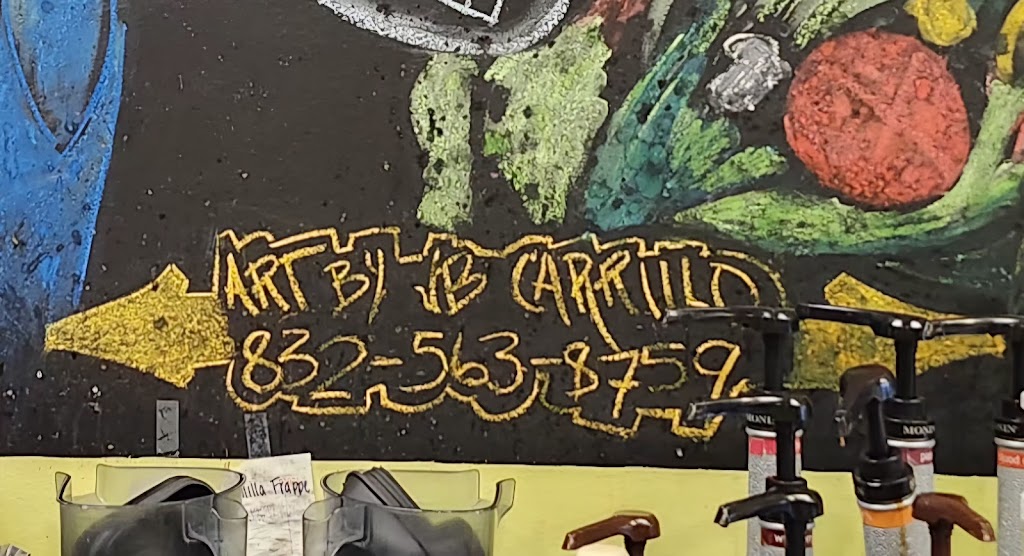 ART BY JB CARRILLO
832-563-8759
illa Frappe
MONIN